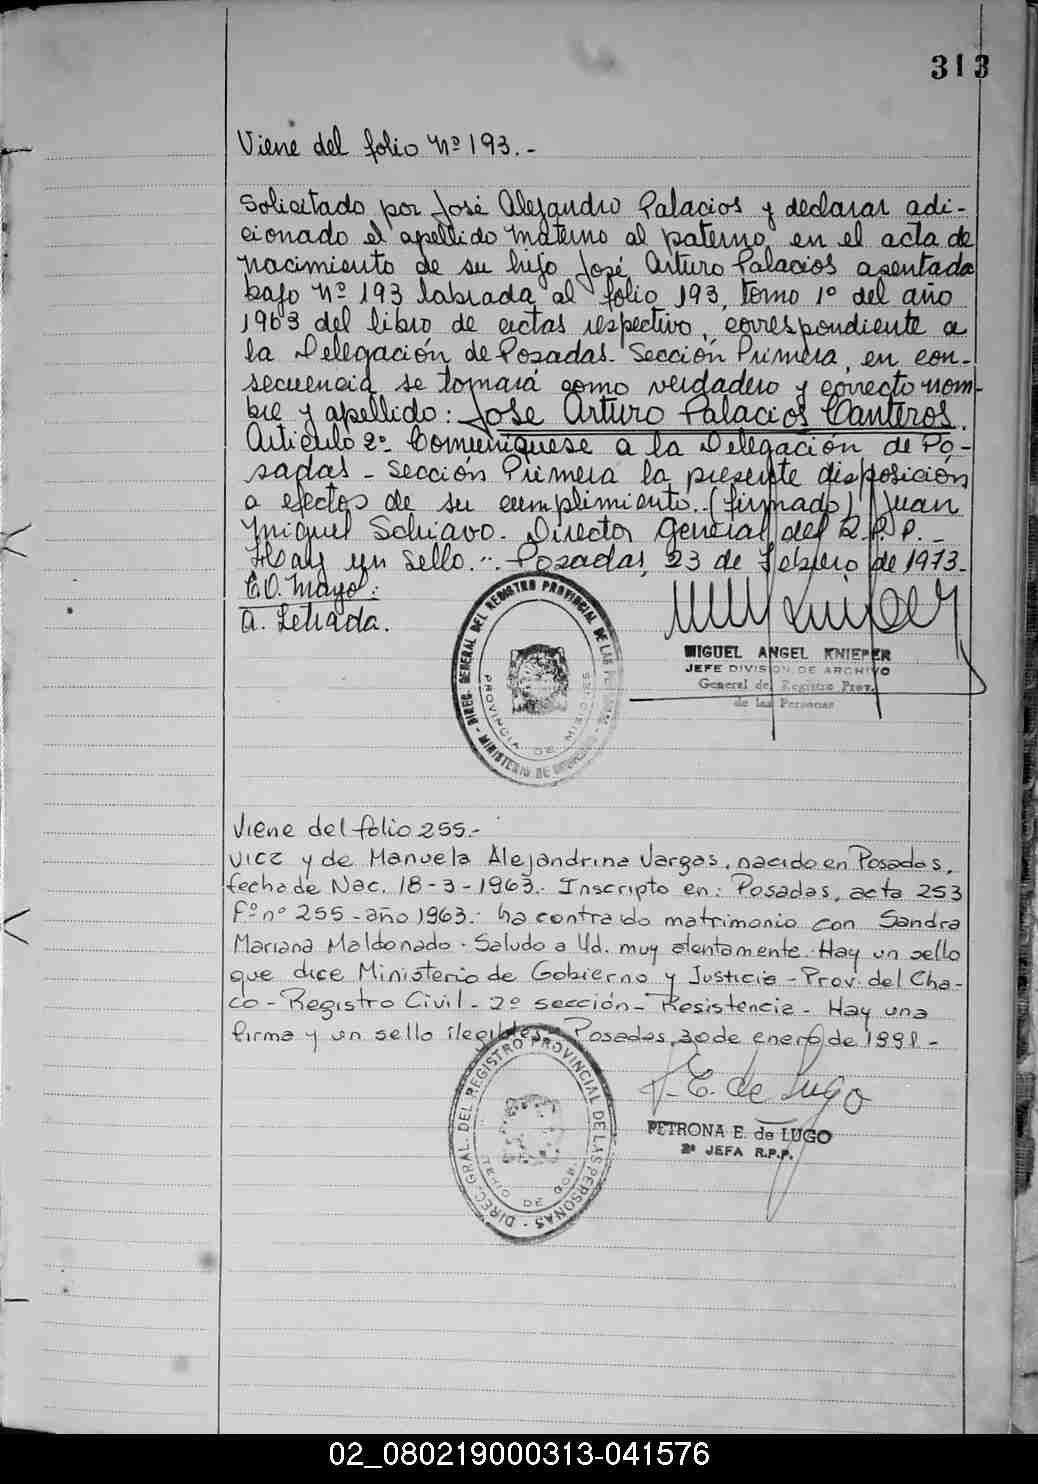 313
Viene del folio Nº 193.-
Solicitado por José Alejandro Palacios y declarar adi-
cionado el apellido materno al paterno, en el acta de
nacimiento de su hijo José Arturo Palacios asentada
bajo Nº 193 labrada al folio 193, tomo 1º del año
1963 del libro de actas respectivo, correspondiente a
la Delegación de Posadas - Sección Primera, en con-
secuencia se tomará como verdadero y correcto nom-
bre y apellido: José Arturo Palacios Canteros.
Artículo 2º Comuníquese a la Delegación de Po-
sadas - Sección Primera la presente disposición
a efectos de su cumplimiento. (firmado) Juan
Miguel Schiavo. Director General del R.P.P.-
Hay un sello.-. Posadas, 23 de Febrero de 1973.-
E.O. Mayo:
A. Letrada.
MIGUEL ANGEL KNIEPER
JEFE DIVISION DE ARCHIVO
General del Registro Prov.
de las Personas
DIREC. GENERAL DEL REGISTRO PROVINCIAL DE LAS PERSONAS - MINISTERIO DE GOBIERNO -
PROVINCIA DE MISIONES
Viene del folio 255.-
vicz y de Manuela Alejandrina Vargas, nacido en Posadas,
fecha de Nac. 18-3-1963.- Inscripto en: Posadas, acta 253
Fº nº 255 - año 1963.- ha contraido matrimonio con Sandra
Mariana Maldonado - Saludo a Ud. muy atentamente. Hay un sello
que dice Ministerio de Gobierno y Justicia - Prov. del Cha-
co - Registro Civil - 2º sección - Resistencia - Hay una
firma y un sello ilegibles - Posadas, 30 de enero de 1991 -
P. E. de Lugo
PETRONA E. de LUGO
2ª JEFA R.P.P.
DIREC. GRAL. DEL REGISTRO PROVINCIAL DE LAS PERSONAS -
02_080219000313-041576